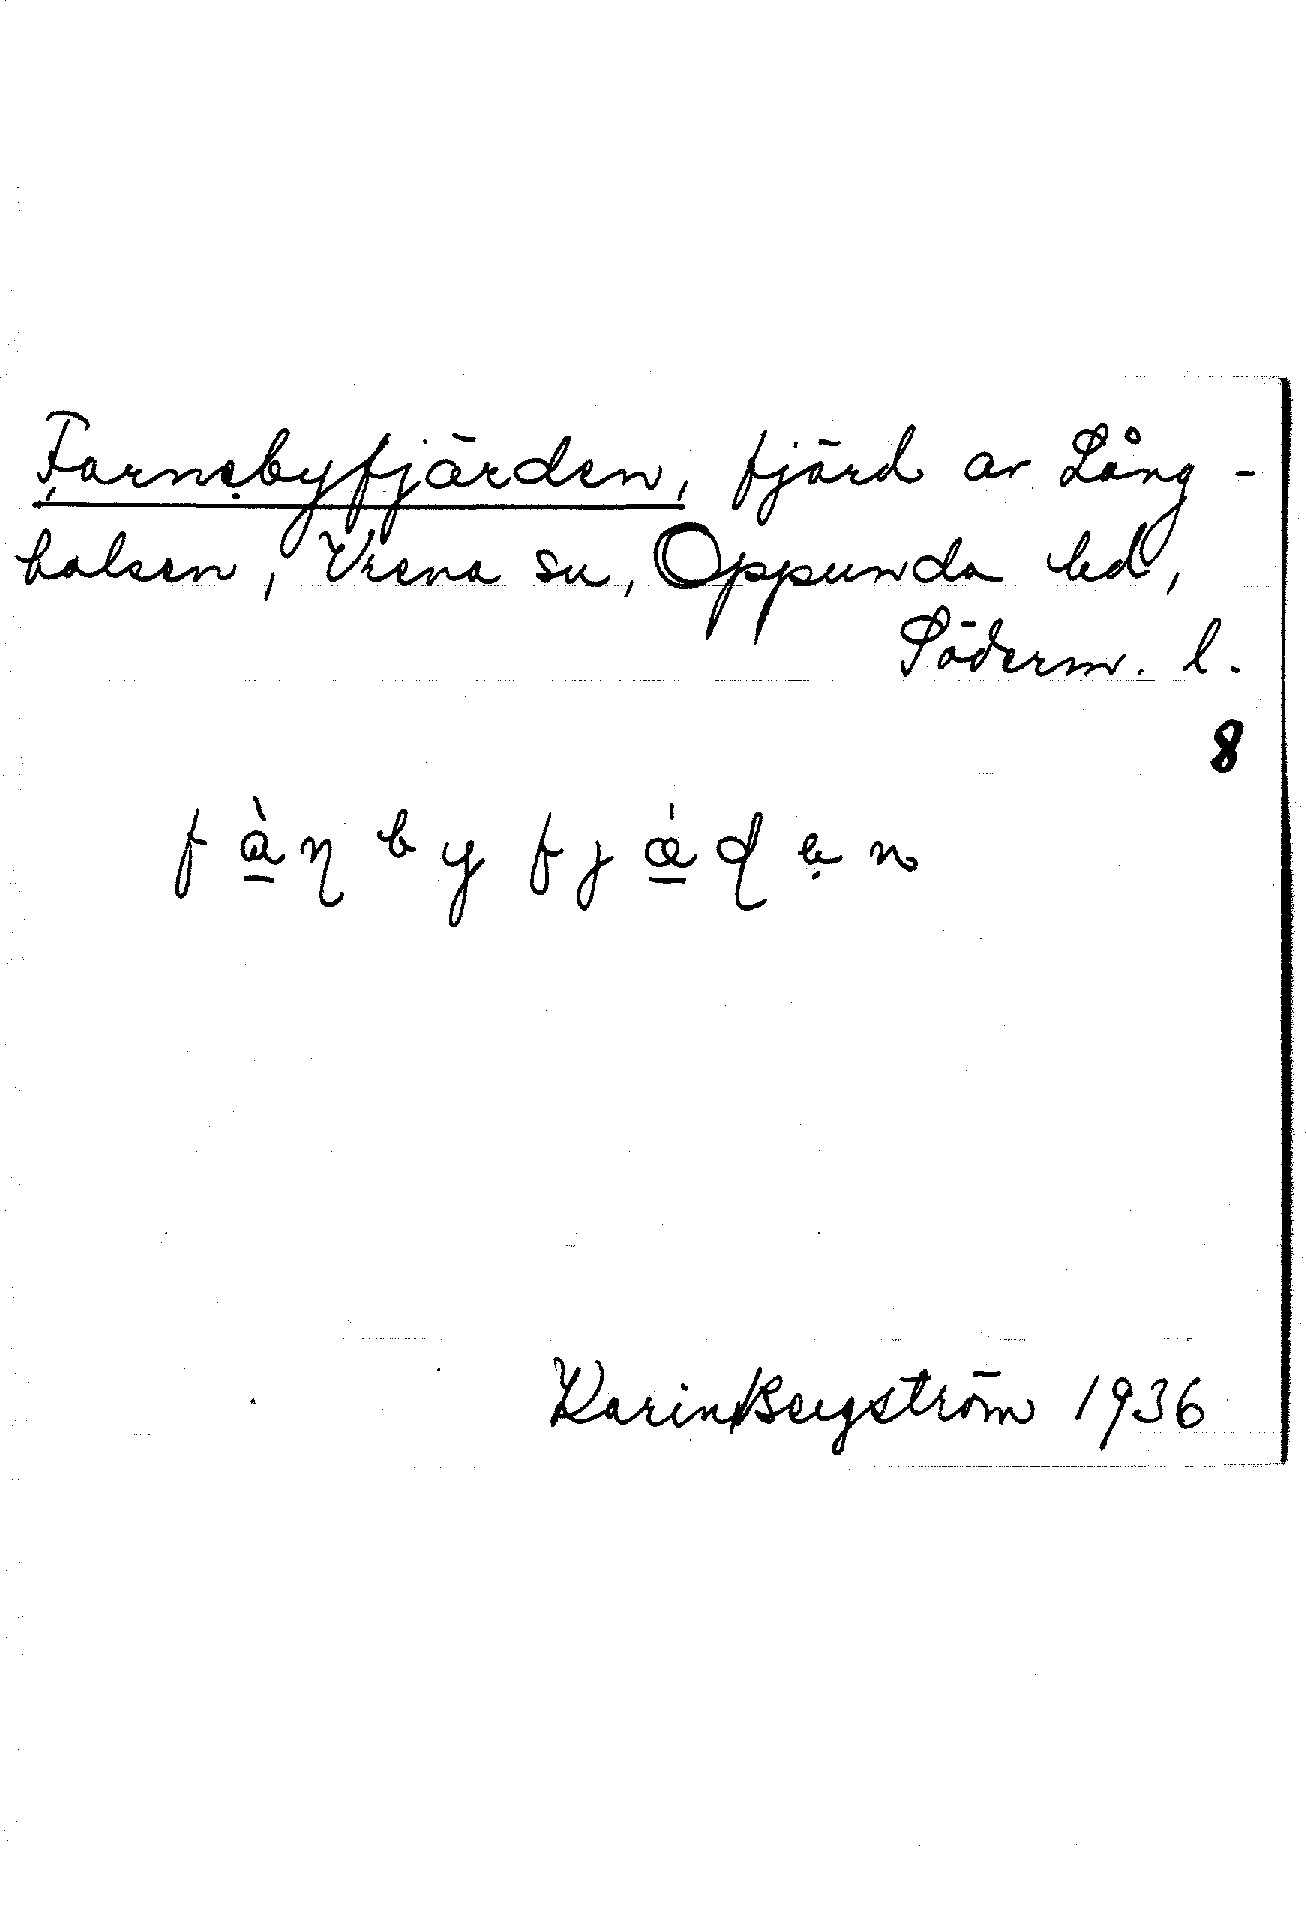 Farnebyfjärden, fjärd av Lång-
halsen, Vrena sn, Oppunda hd,
Söderm. l.
8
f à̲ ɳ b y f j ǽ̲ ɖ ẹ n
Karin Bergström 1936